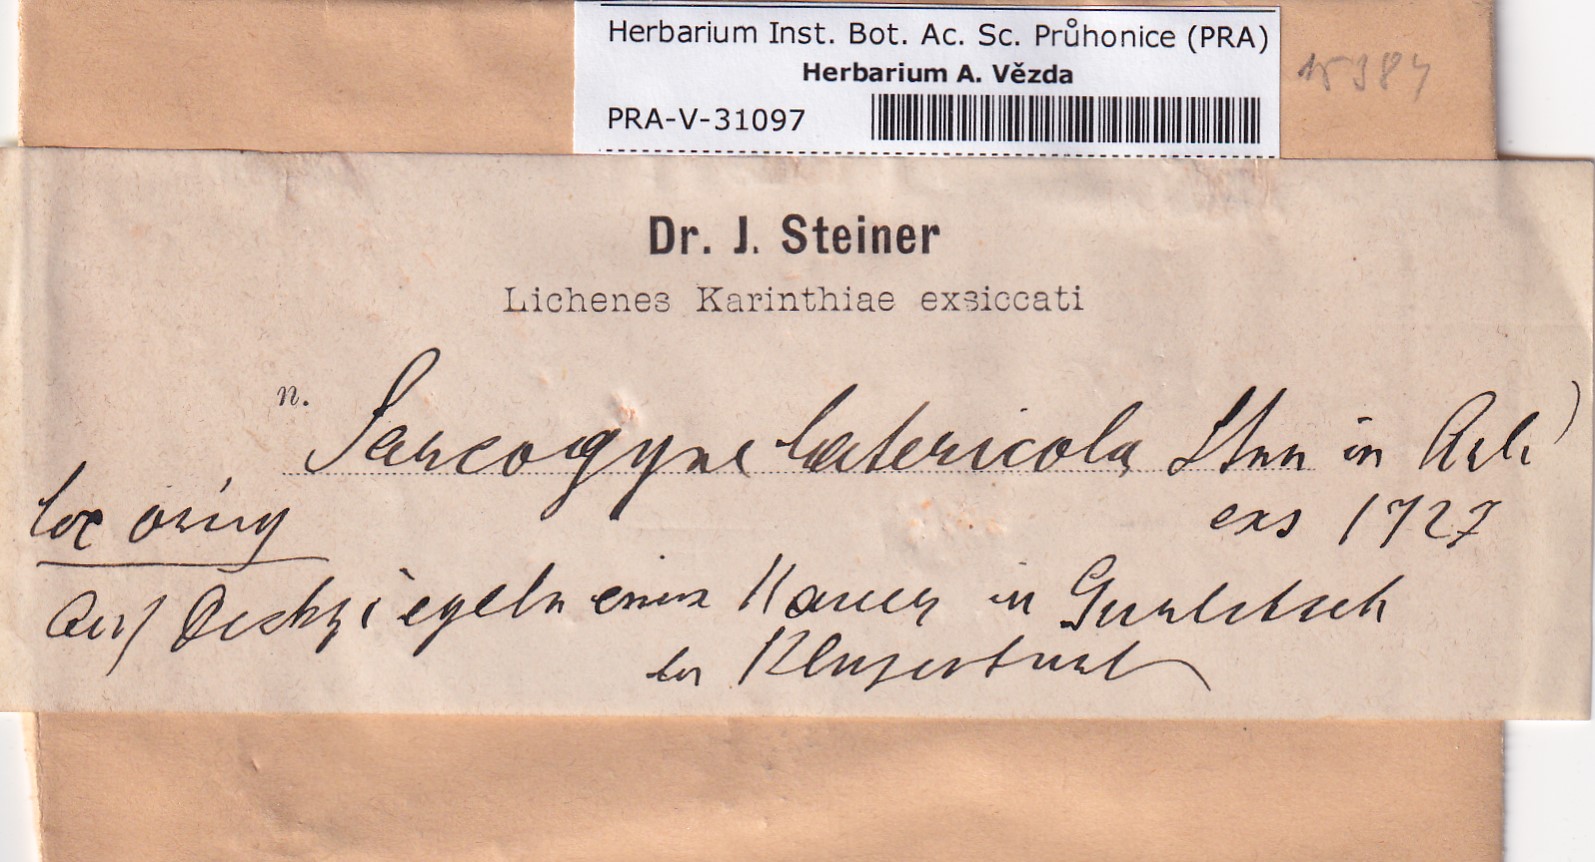 Herbarium Inst. Bot. Ac. Sc. Průhonice (PRA)
Herbarium A. Vězda
PRA-V-31097
Dr. J. Steiner
Lichenes Karinthiae exsiccati
n. Sarcogyne latericola Stnr in
exs 1727
loc orig
Auf Deckziegeln einer Mauer in Gurlitsch
bei Klagenfurt